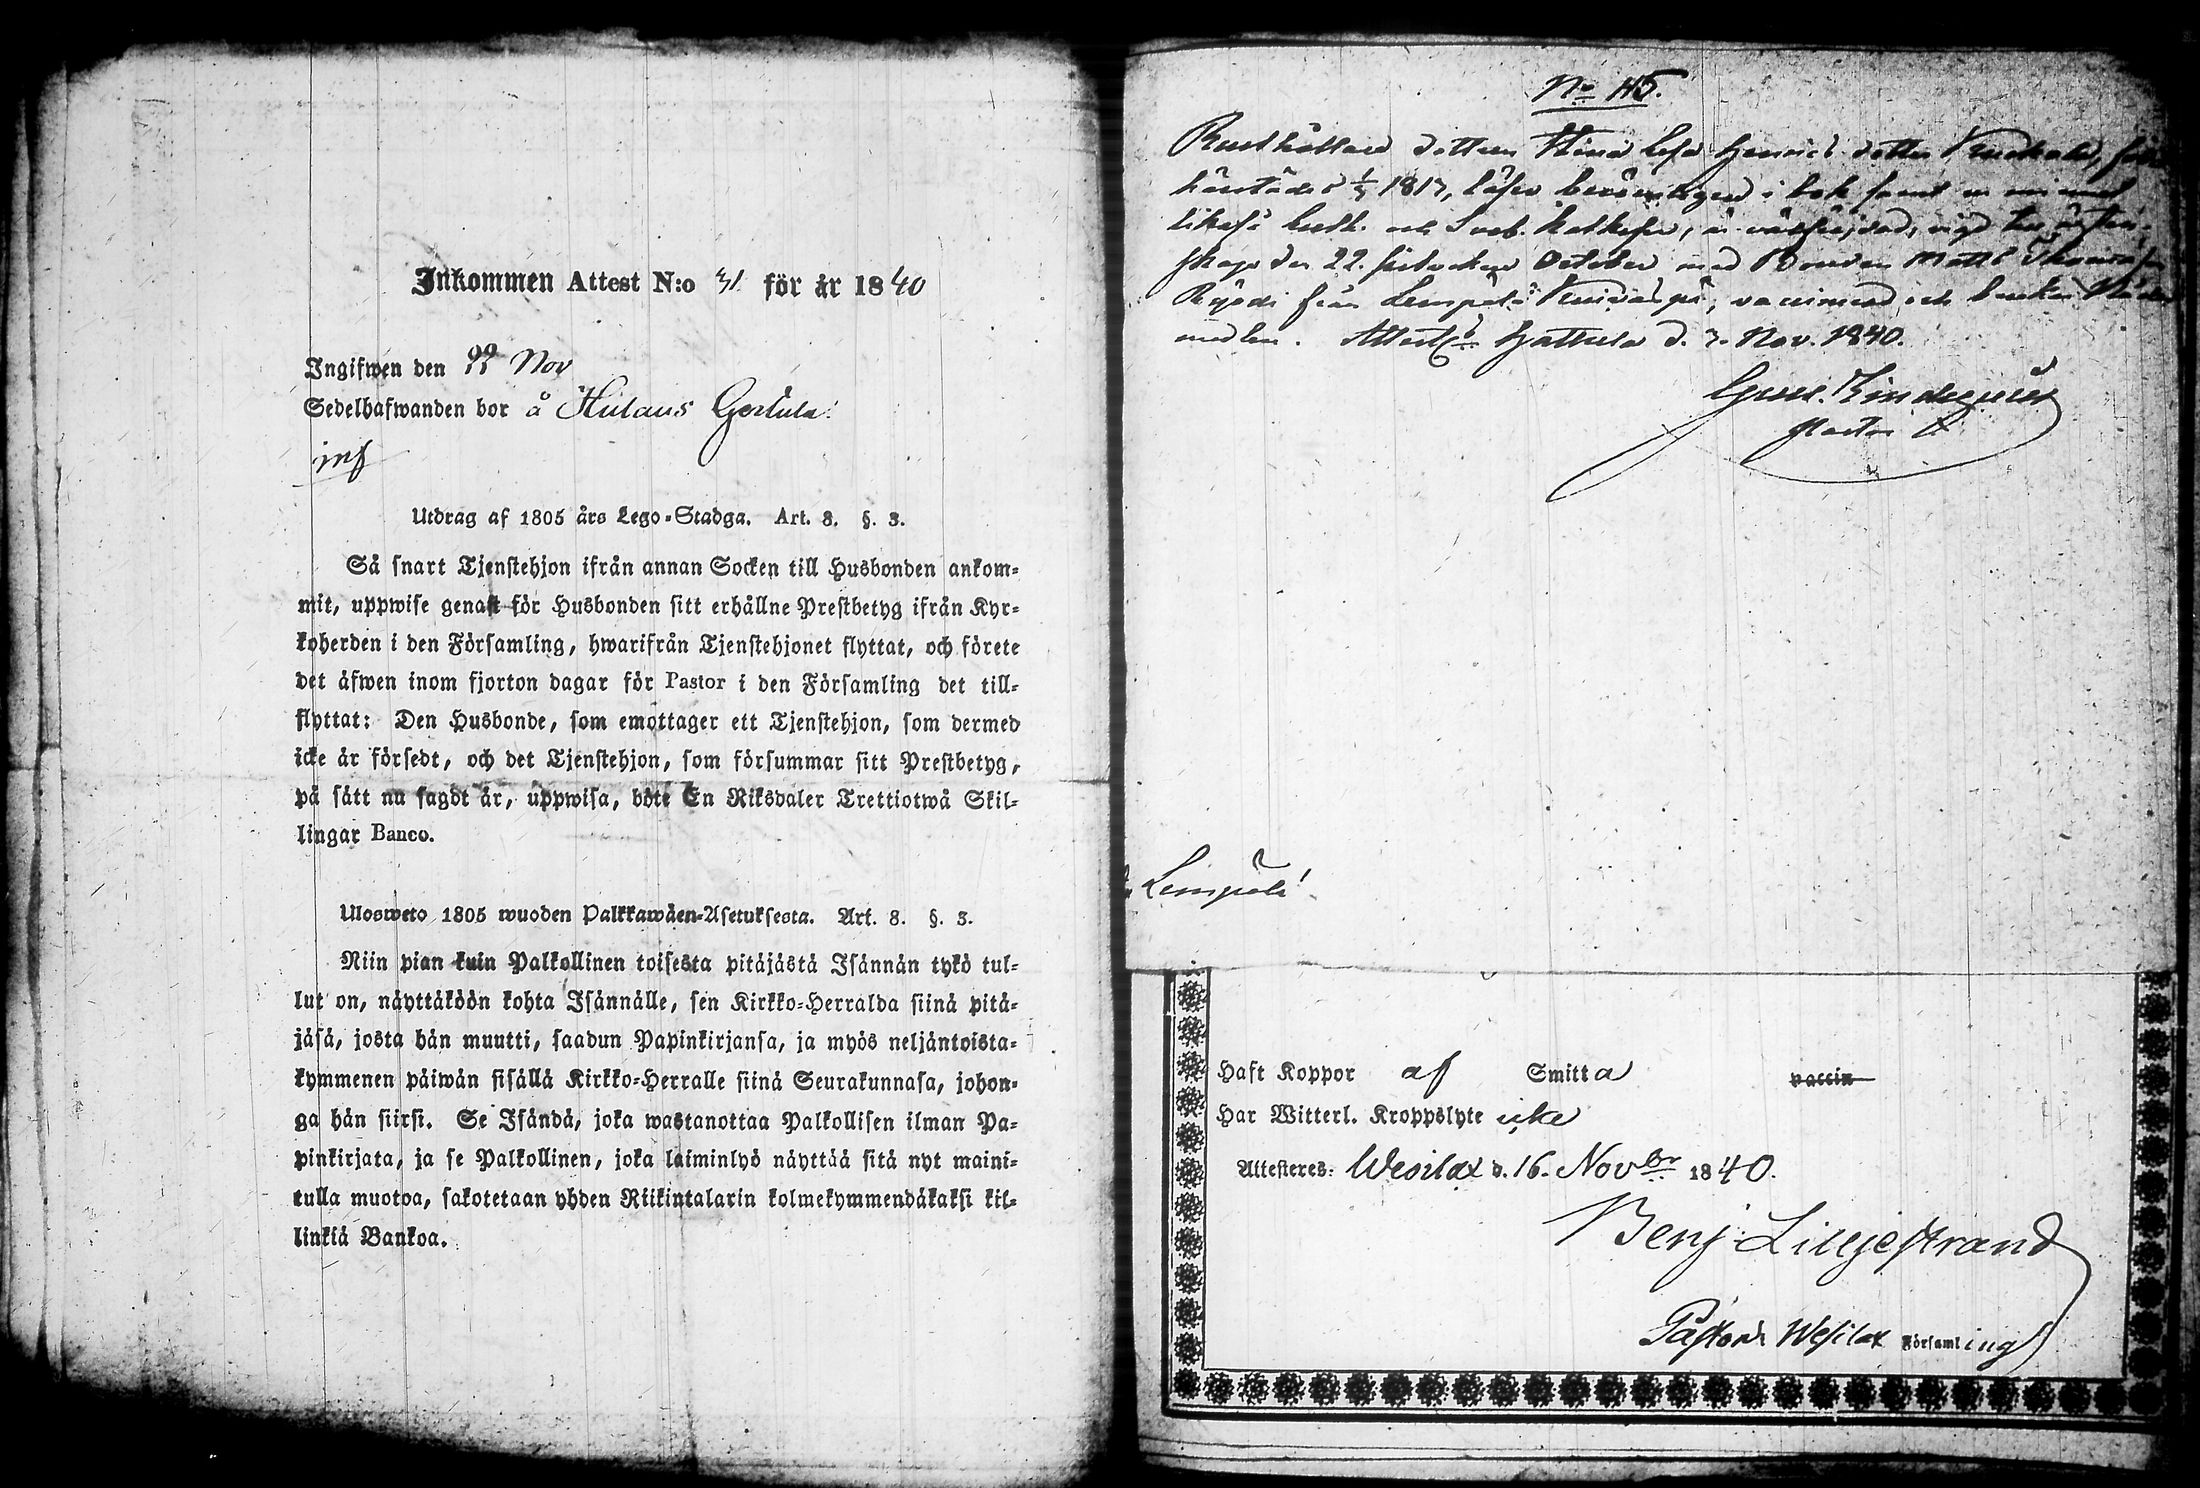 Inkommen Attest N:o 31 för år 1840
Ingifwen den 22 Nov
Sedelhafwanden bor å Hulaus Gerlula
inf
Utdrag af 1805 års Lego-Stadga. Art. 8. §. 3.
Så snart Tjenstehjon ifrån annan Socken till Husbonden ankom-
mit, uppwise genast för Husbonden sitt erhållne Prestbetyg ifrån Kyr-
koherden i den Församling, hwarifrån Tjenstehjonet flyttat, och förete
det äfwen inom fjorton dagar för Pastor i den Församling det till-
flyttat: Den Husbonde, som emottager ett Tjenstehjon, som dermed
icke är försedt, och det Tjenstehjon, som försummar sitt Prestbetyg,
på sätt nu sagdt är, uppwisa, böte En Riksdaler Trettiotwå Skil-
lingar Banco.
Ulosweto 1805 wuoden Palkkawäen-Asetuksesta. Art. 8. §. 3.
Niin pian kuin Palkollinen toisesta pitäjästä Isännän tykö tul-
lut on, näyttäköön kohta Isännälle, sen Kirkko-Herralda siinä pitä-
jäsä, josta hän muutti, saadun Papinkirjansa, ja myös neljäntoista-
kymmenen päiwän sisällä Kirkko-Herralle siinä Seurakunnasa, johon-
ga hän siirsi. Se Isändä, joka wastanottaa Palkollisen ilman Pa-
pinkirjata, ja se Palkollinen, joka laiminlyö näyttää sitä nyt maini-
tulla muotoa, sakotetaan yhden Riikintalarin kolmekymmendäkaksi kil-
linkiä Bankoa.
No 115.
Rusthållare dottren Stina Henrics dotter
härstädes 1817, läser i bok samt
likaså Luth. och Sveb. är
den 22. October med Bonden Matts
från Lempälä vaccinerad och
medlen. Hattula d. 3. Nov. 1840.
Pastor
Lempälä
Haft Koppor af Smitta vaccin
Har Witterl. Kroppslyte icke
Attesteres: Wesilax d. 16. Novbr 1840.
Benj Liljestrand
Pastor i Wesilax Församling